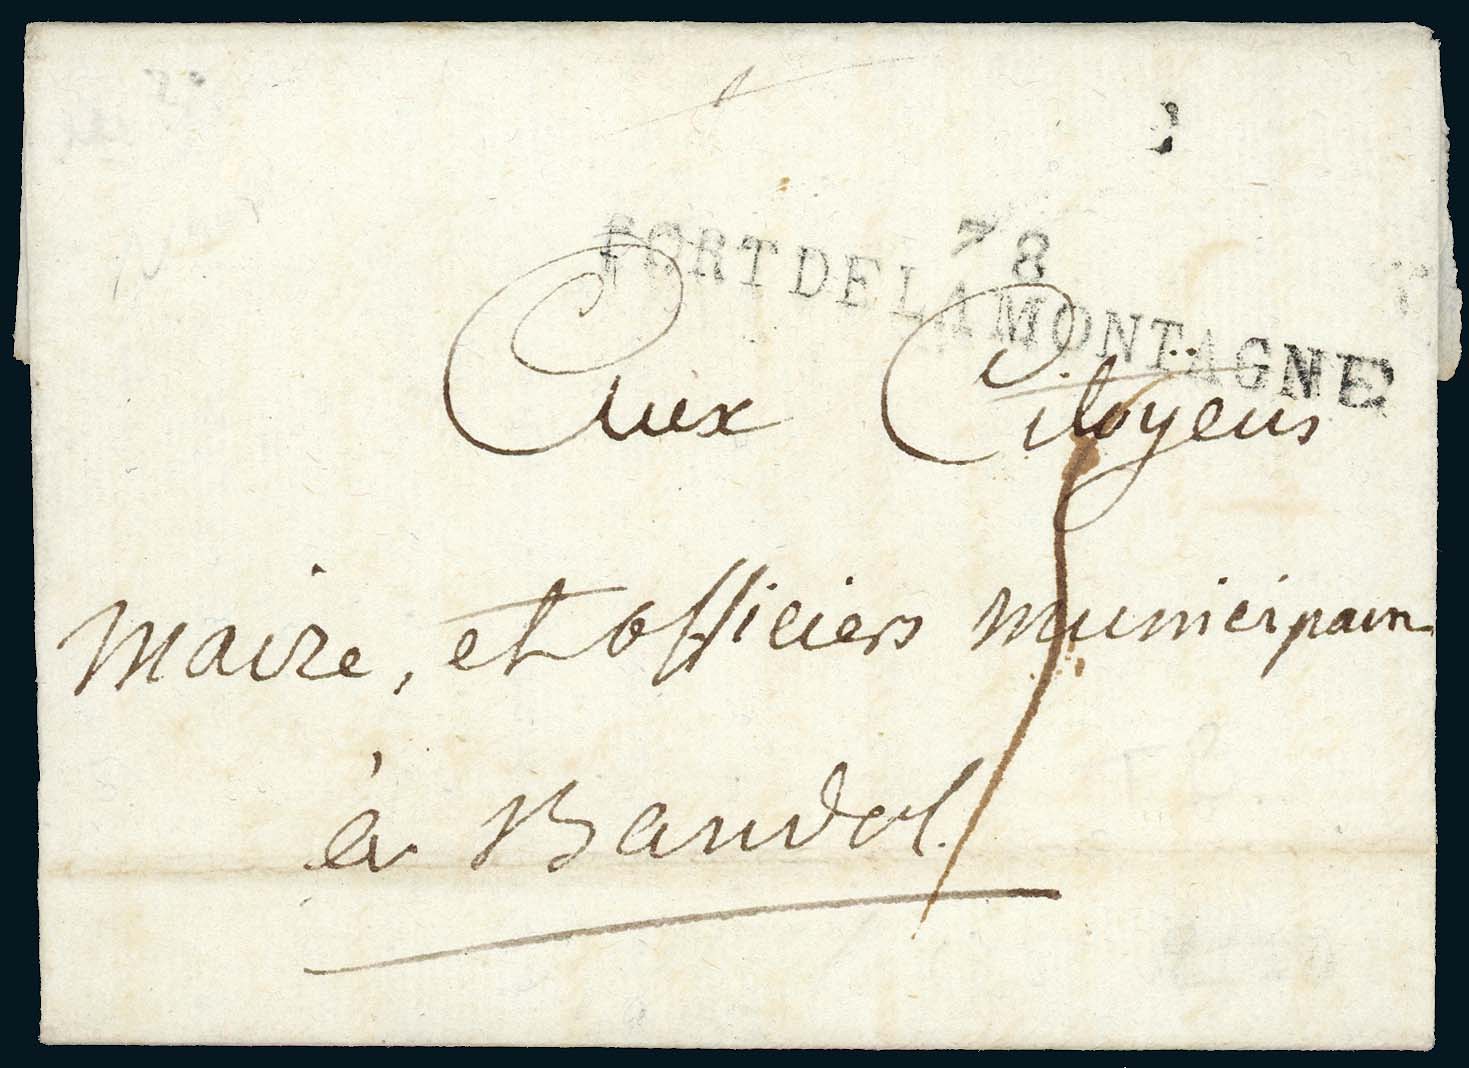 78
PORT DE LA MONTAGNE
Aux Citoÿens
Maire, et officiers municipaux
à Bandol.